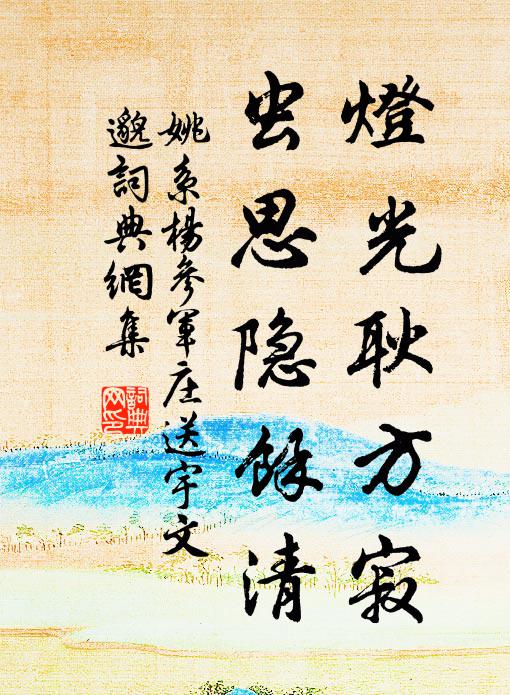 燈光耿方寂
虫思隐餘清
姚系楊參軍庄送宇文
邈詞典網集
詞典
网印